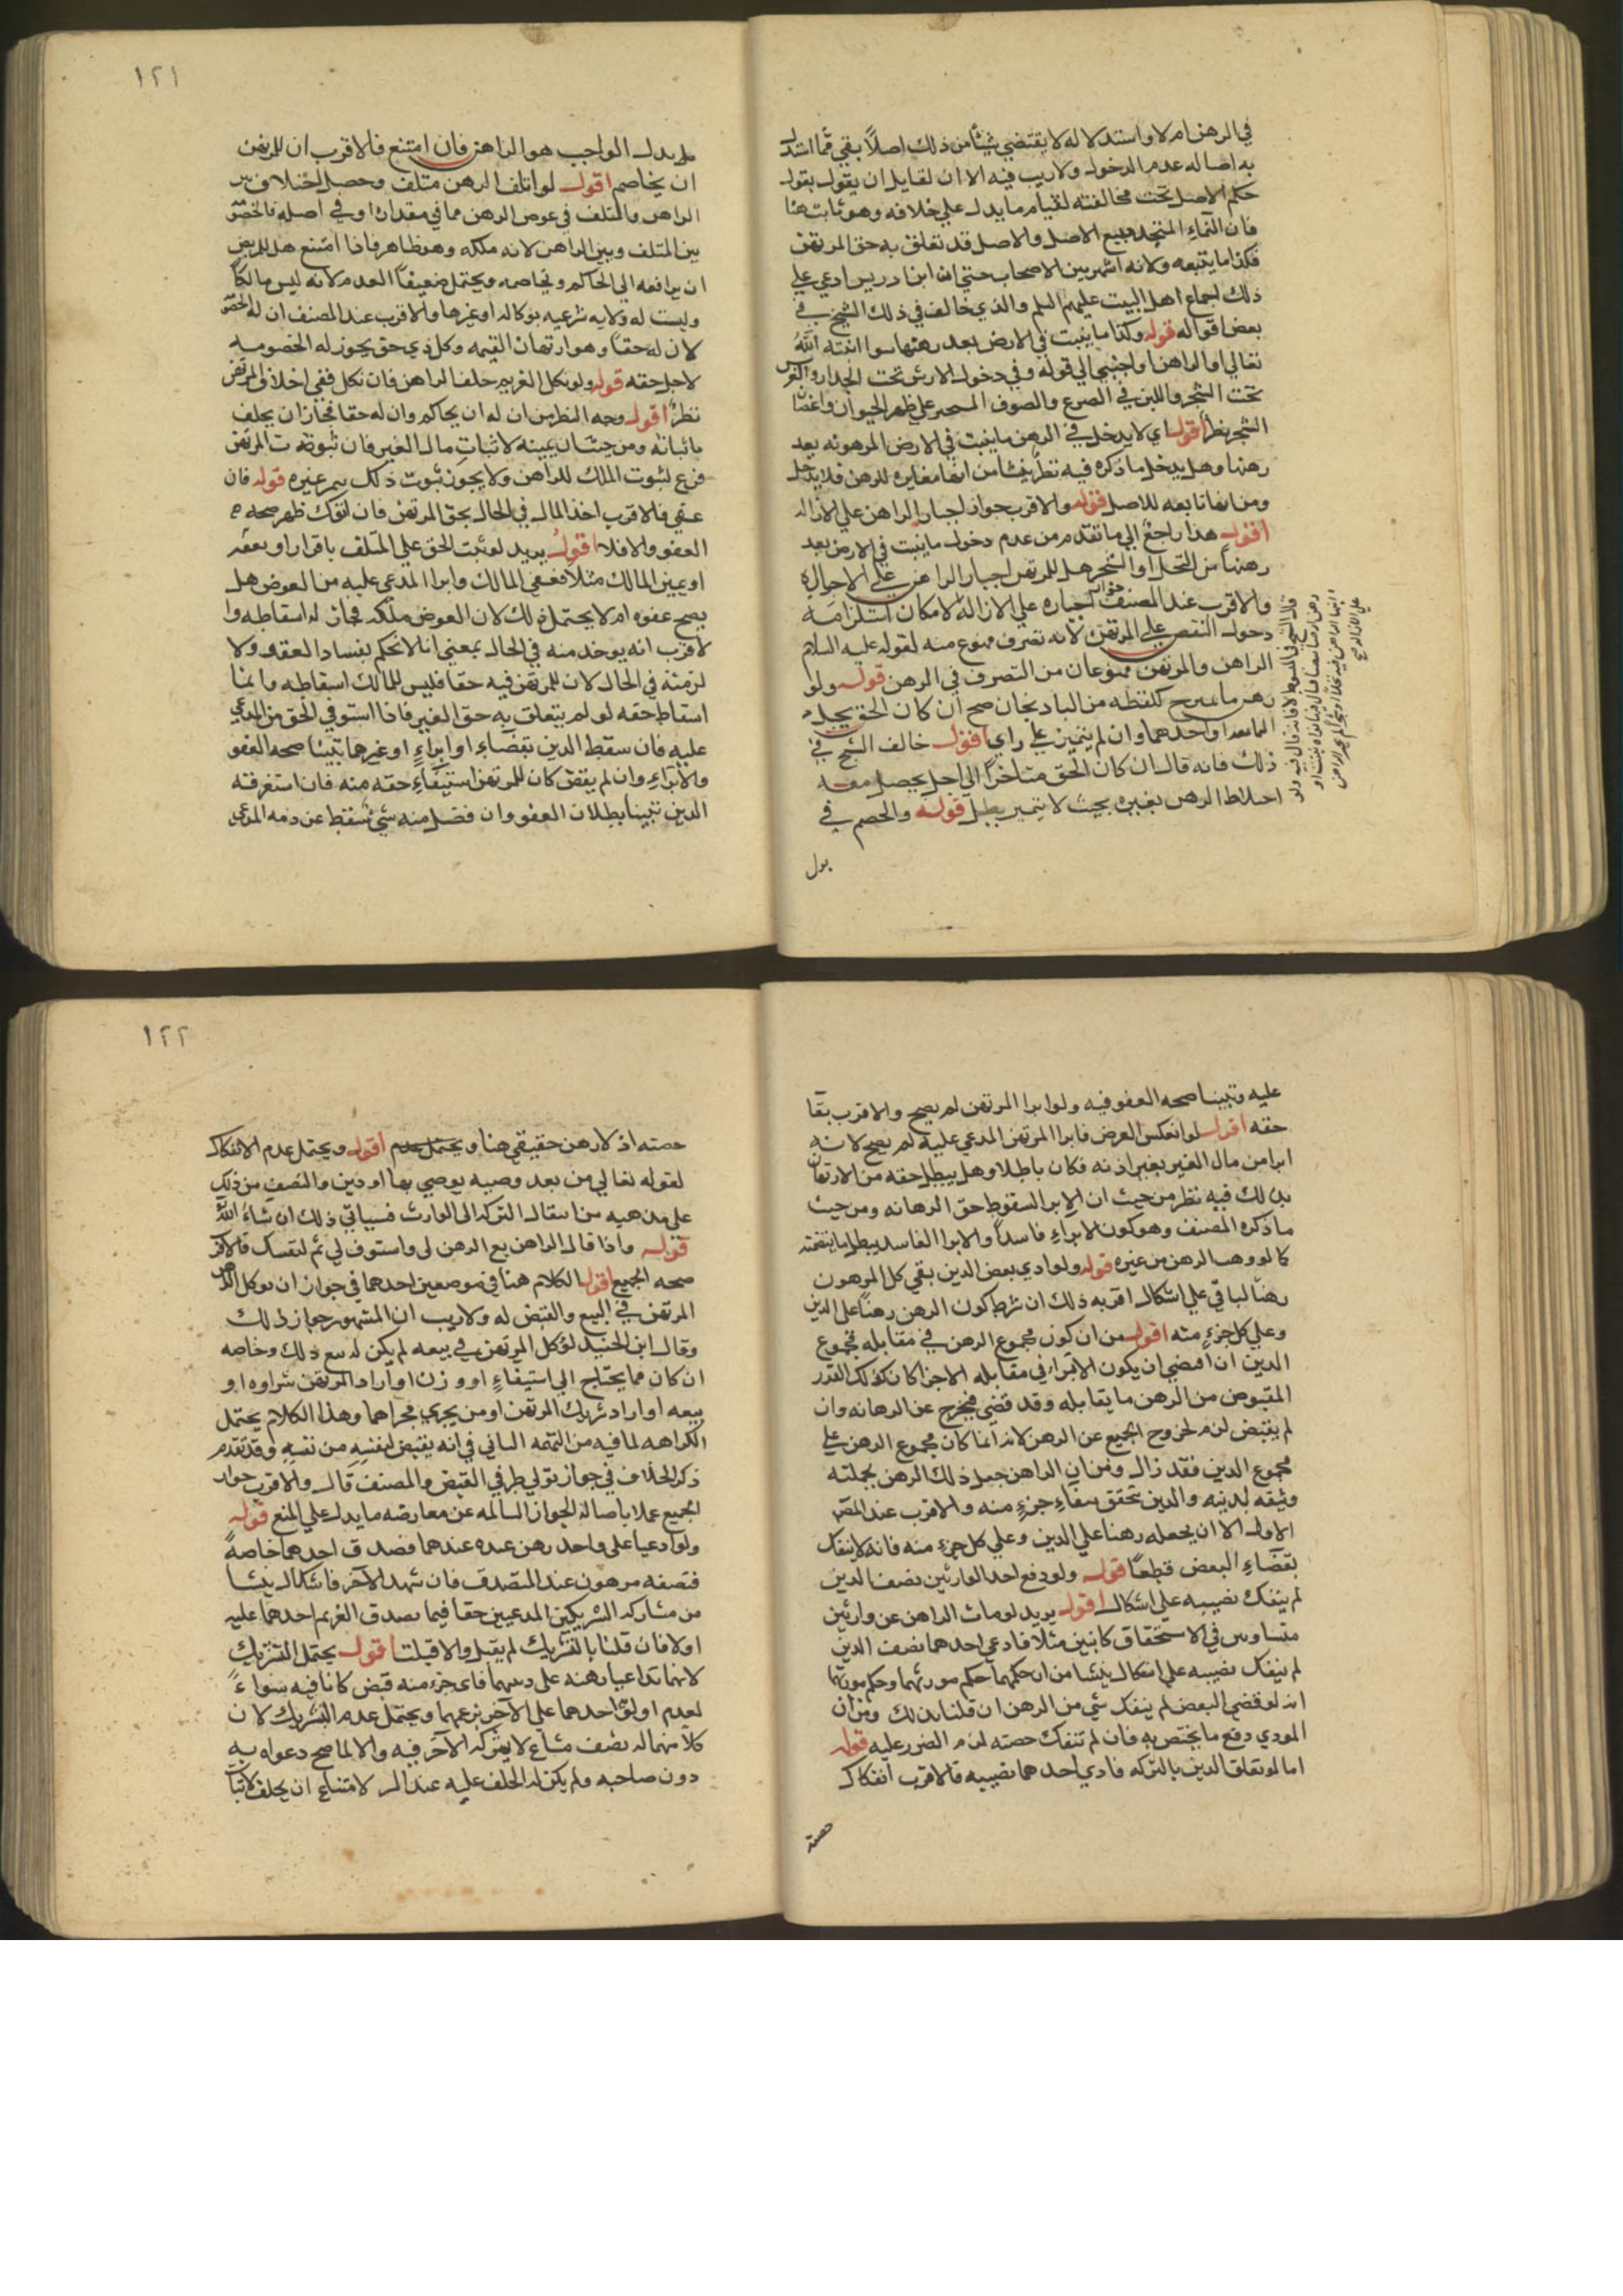 في الرهن ام لا واستدلاله لا يقتضي شيئا من ذلك اصلاً بقي فما استدل
به اصاله عدم الدخول ولا ريب فيه الا ان لقايل ان يقول بقول
حكم الاصل تحت مخالفته لقيام ما يدل علي خلافه وهو ثابت هنا
فان النماء المتجدد يتبع الاصل والاصل قد تعلق به حق المرتهن
فكذا ما يتبعه ولانه اشهر بين الاصحاب حتي ان ابن ادريس ادعي علي
ذلك اجماع اهل البيت عليهم السلم والذي خالف في ذلك الشيخ في
بعض اقواله قوله وكذا ما ينبت في الارض بعد رهنها سوا انبته الله
تعالي او الراهن او اجنبي الي قوله وفي دخول الارش تحت الجدار والغرس
تحت الشجر واللبن في الضرع والصوف المستجز علي ظهر الحيوان واغصان
الشجر نظر اقول اي لا يدخل في الرهن ما ينبت في الارض المرهونه بعد
رهنها وهل يدخل ما ذكره فيه نظر ينشا من انها مغايره للرهن فلا يدخل
ومن انها تابعه للاصل قوله والاقرب جواز اجبار الراهن علي الازاله
اقول هذا راجع الي ما تقدم من عدم دخول ما ينبت في الارض بعد
رهنها من النخل او الشجر هل للمرتهن اجبار الراهن علي الازاله
والاقرب عند المصنف جواز اجباره علي الازاله لامكان استلزامه
دخول النقص علي المرتهن لانه تصرف ممنوع منه لقوله عليه السلام
الراهن والمرتهن ممنوعان من التصرف في الرهن قوله ولو
رهن ما يمتزج كلقطه من الباذنجان صح ان كان الحق يحل
او احدهما وان لم يتميز علي راي اقول خالف الشيخ في
ذلك فانه قال ان كان الحق متاخراً الي اجل يحصل معه
اختلاط الرهن بغيره بحيث لا يتميز بطل قوله والخصم في
بدل
١٢١
بدل الواجب هو الراهن فان امتنع فالاقرب ان للمرتهن
ان يخاصم اقول لو اتلف الرهن متلف وحصل اختلاف بين
الراهن والمتلف في عوض الرهن مما في مقداره او في اصله فالخصو
بين المتلف وبين الراهن لانه ملكه وهو ظاهر فاذا امتنع هل للمرتهن
ان يرافعه الي الحاكم ويخاصمه ويحتمل ضعيفاً العدم لانه ليس مالكاً
وليست له ولايه شرعيه بوكاله او غيرها والاقرب عند المصنف ان له الخصو
لان له حقاً وهو ارتهان القيمه وكل ذي حق يجوز له الخصومه
لاجل حقه قوله ولو نكل الغريم حلف الراهن فان نكل ففي احلاف المرتهن
نظر اقول وجه النظر من ان له ان يحاكم وان له حقا فجاز ان يحلف
باثباته ومن حيث ان يمينه لاثبات مال الغير فان ثبوته المرتهن
فرع لثبوت الملك للراهن ولا يجوز ثبوت ذلك بيمين غيره قوله فان
عفي فالاقرب اخذ المال في الحال بحق المرتهن فان انفك ظهر صحه
العفو والا فلا اقول يريد لو ثبت الحق علي المتلف باقرار او ببينه
او بيمين المالك مثلا فعفي المالك وابرا المدعي عليه من العوض هل
يصح عفوه ام لا يحتمل ذلك لان العوض ملكه فجاز له اسقاطه وا
لاقرب انه يوخذ منه في الحال بمعني انا لا نحكم بفساد العفو ولا
لزمته في الحال لان للمرتهن فيه حقا فليس للمالك اسقاطه وانما
اسقاط حقه لو لم يتعلق به حق الغير فاذا استوفي الحق من المدعي
عليه فان سقط الدين بقضاء او ابراء او غيرهما تبينا صحه العفو
والابراء وان لم يقض كان للمرتهن استيفاء حقه منه فان استغرقته
الدين تبينا بطلان العفو وان فضل منه شي سقط عن ذمه المدعي
عليه وتبينا صحه العفو فيه ولو ابرا المرتهن لم يصح والاقرب بقا
حقه اقول لو انعكس الفرض فابرا المرتهن المدعي عليه لم يصح لانه
ابرا من مال الغير بغير اذنه فكان باطلا وهل يبطل حقه من الارتهان
بذلك فيه نظر من حيث ان الابرا لسقوط حق الرهانه ومن حيث
ما ذكره المصنف وهو كون الابراء فاسداً والابرا الفاسد يبطل ما يتضمنه
كما لو وهب الرهن من غيره قوله ولو ادي بعض الدين بقي كل المرهون
رهناً لباقي علي اشكال اقربه ذلك ان شرط كون الرهن رهناً علي الدين
وعلي كل جزء منه اقول من ان كون مجموع الرهن في مقابله مجموع
الدين ان اقتضي ان يكون الاجزاء في مقابله الاجزا كان كذلك القدر
المقبوض من الرهن ما يقابله وقد قضي فيخرج عن الرهانه وان
لم يقتض لزم خروج الجميع عن الرهن لانه انما كان مجموع الرهن علي
مجموع الدين فقد زال ومن ان الراهن جعل ذلك الرهن بجملته
وثيقه لدينه والدين تحقق ببقاء جزء منه والاقرب عند المص
الاول الا ان يجعله رهنا علي الدين وعلي كل جزء منه فانه لا ينفك
بقضاء البعض قطعاً قوله ولو دفع احد الوارثين نصف الدين
لم ينفك نصيبه علي اشكال اقول يريد لو مات الراهن عن وارثين
متساويين في الاستحقاق كابنين مثلا فادي احدهما نصف الدين
لم ينفك نصيبه علي اشكال ينشا من ان حكمهما حكم مورثهما وحكم مورثهما
انه لو قضي البعض لم ينفك شي من الرهن ان قلنا بذلك ومن ان
المودي دفع ما يختص به فان لم تنفك حصته لزم الضرر عليه قوله
اما لو تعلق الدين بالتركه فادي احدهما نصيبه فالاقرب انفكاك
حصته
١٢٢
حصته اذ لا رهن حقيقي هنا ويحتمل عدم اقول ويحتمل عدم الانفكاك
لقوله تعالي من بعد وصيه يوصي بها او دين والنصف من ذلك
علي مذهبه من انتقال التركه الي الوارث فسياتي ذلك ان شاء الله
قوله واذا قال الراهن بع الرهن لي واستوف لي ثم لنفسك فالاقر
صحه الجميع اقول الكلام هنا في موضعين احدهما في جواز ان يوكل الراهن
المرتهن في البيع والقبض له ولا ريب ان المشهور جواز ذلك
وقال ابن الجنيد لو وكل المرتهن في بيعه لم يكن له بيع ذلك وخاصه
ان كان مما يحتاج الي استيفاء او وزن او اراد المرتهن شراوه او
بيعه او اراد شريك المرتهن او من يجري مجراهما وهذا الكلام يحتمل
الكراهه لما فيه من التهمه الثاني في انه يقبض لنفسه من نفسه وقد تقدم
ذكر الخلاف في جواز تولي طرفي القبض والمصنف قال والاقرب جواز
الجميع عملا باصاله الجواز السالمه عن معارضه ما يدل علي المنع قوله
ولو ادعيا علي واحد رهن عبده عندهما فصدق احدهما خاصةً
فنصفه مرهون عند المصدق فان شهد للاخر فاشكال ينشا
من مشاركه الشريكين المدعيين حقا فيما يصدق الغريم احدهما عليه
اولا فان قلنا بالتشريك لم يقبل والا قبلنا اقول يحتمل التشريك
لانهما تداعيا رهنه علي دينهما فاي جزء منه قبض كانا فيه سواءً
لعدم اولويه احدهما علي الاخر بزعمهما ويحتمل عدم التشريك لان
كلا منهما له نصف مشاع لا يشركه الاخر فيه والا لما صح دعواه به
دون صاحبه ولم يكن له الحلف عليه عند لامتناع ان يحلف لاثبا